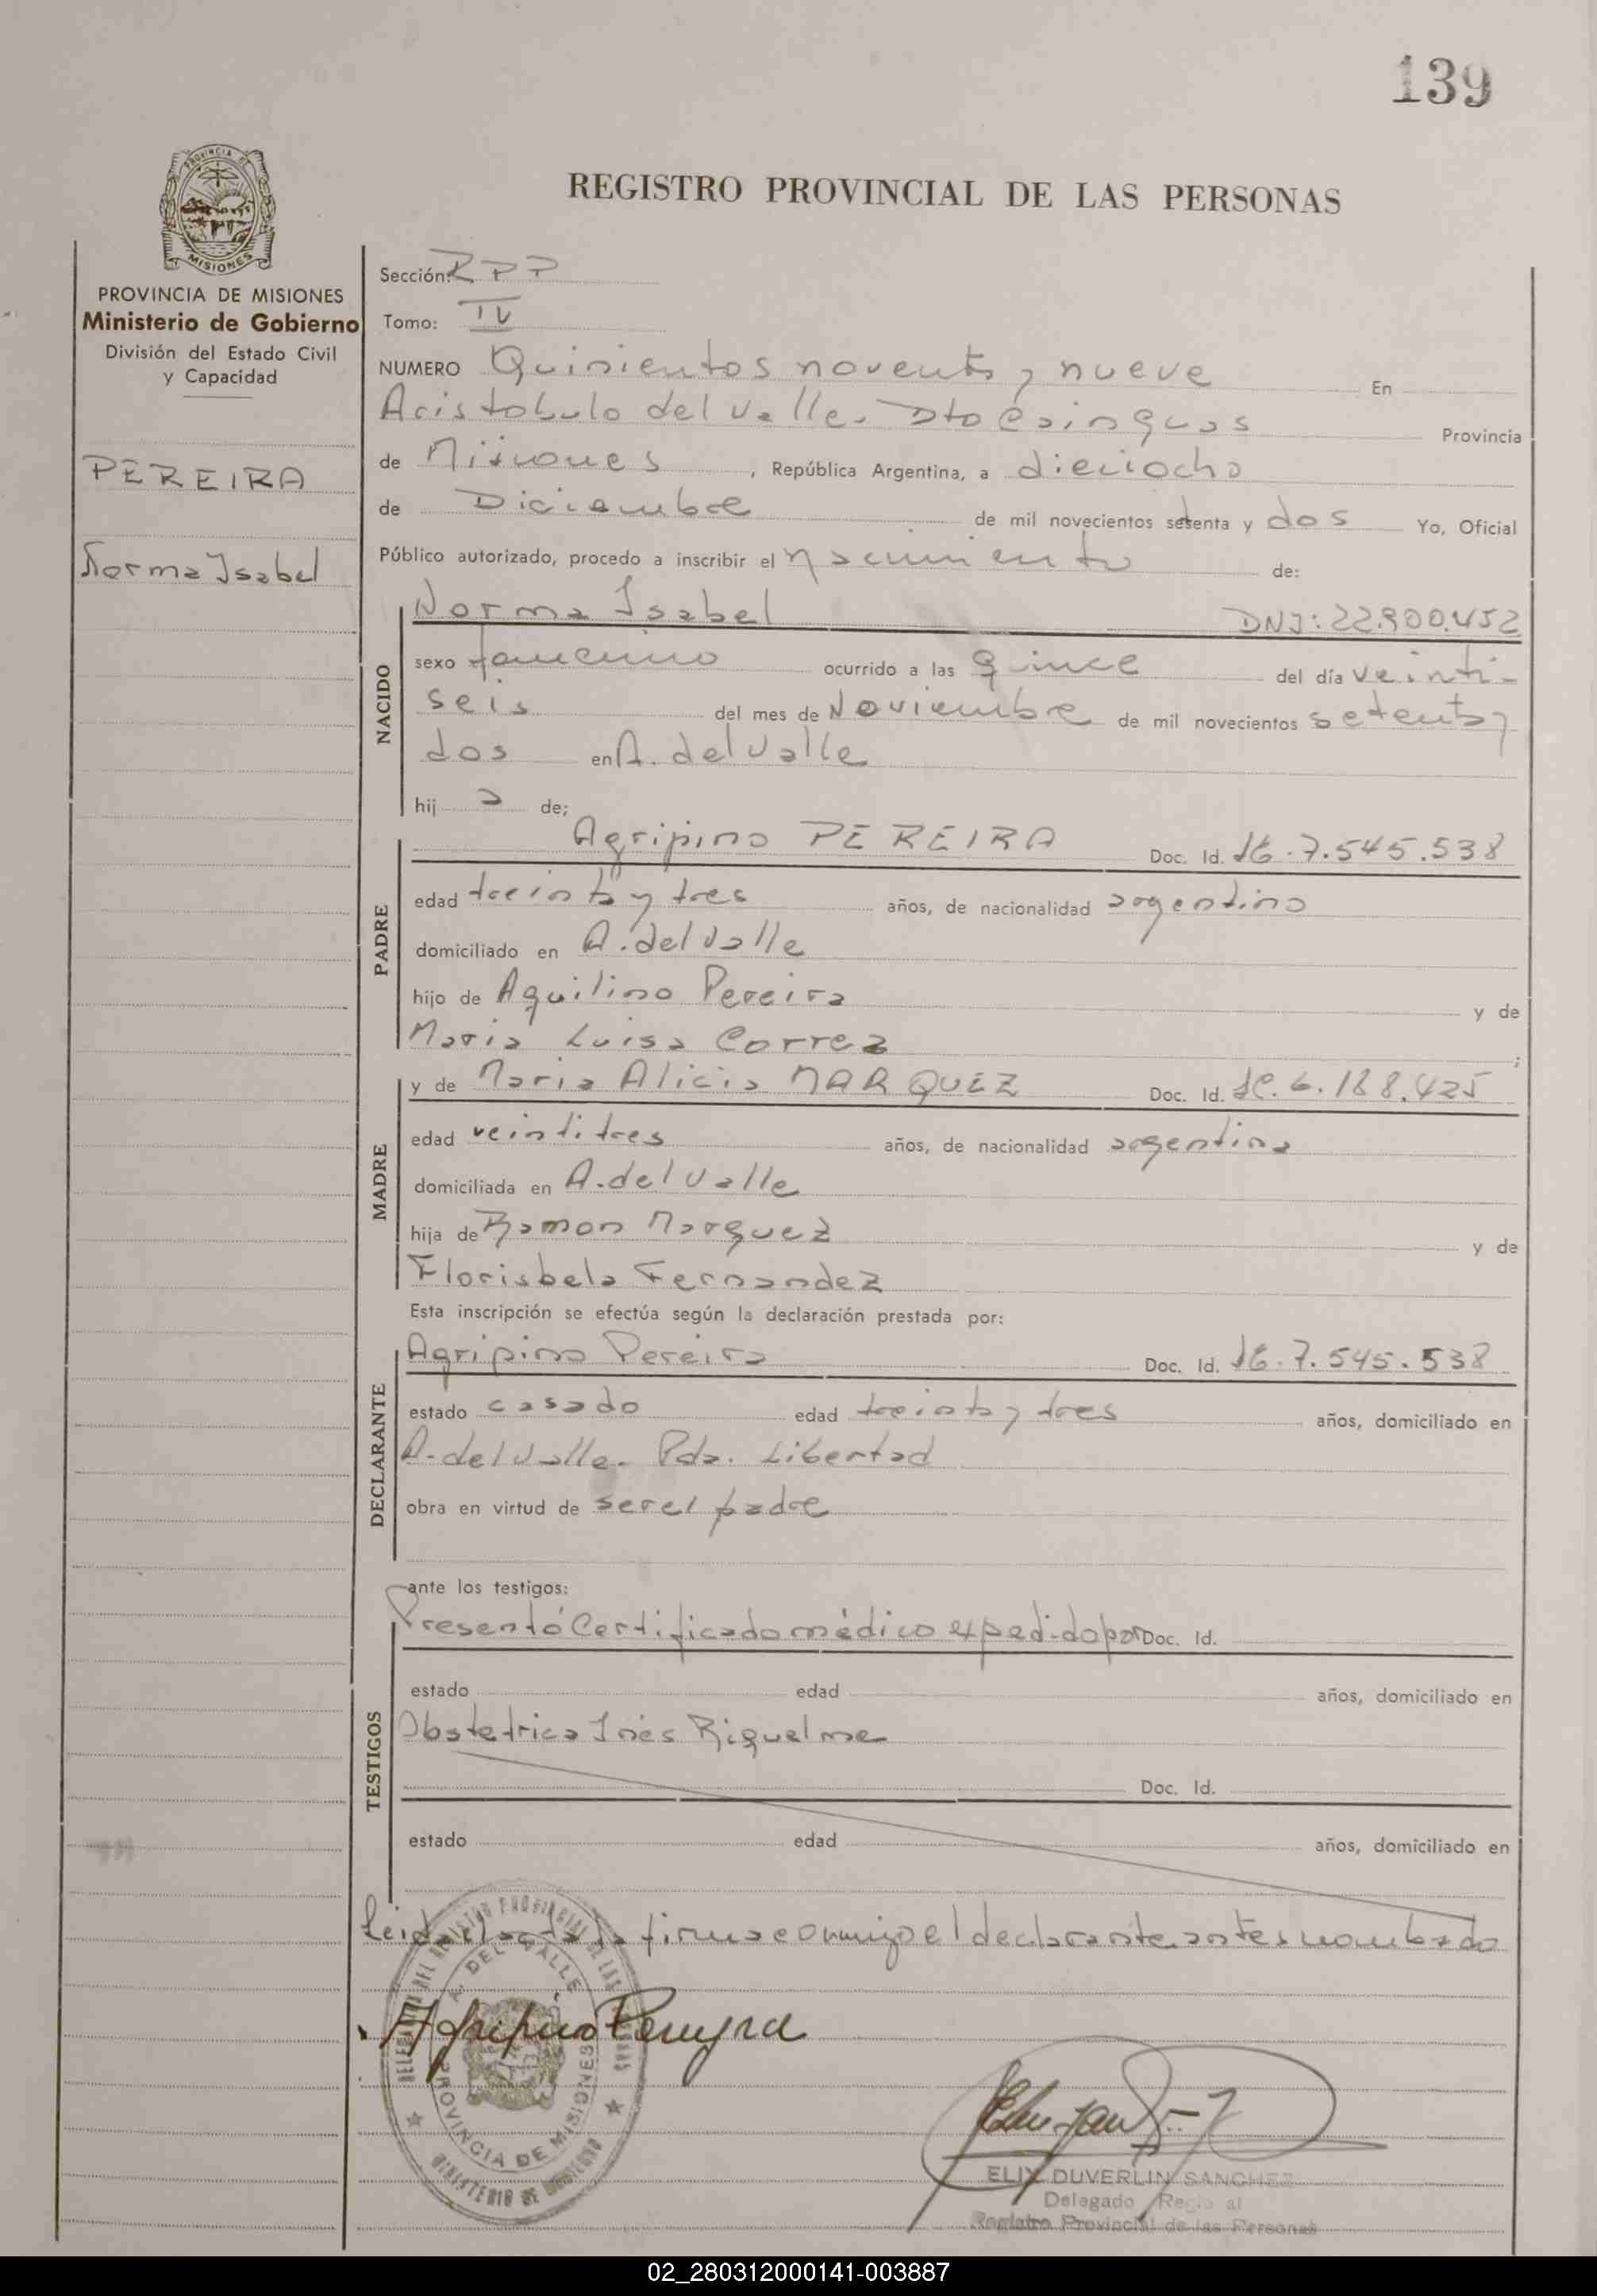 139
REGISTRO PROVINCIAL DE LAS PERSONAS
PROVINCIA DE MISIONES
Ministerio de Gobierno
División del Estado Civil
y Capacidad
PEREIRA
Norma Isabel
Sección: RPP
Tomo: IV
NUMERO Quinientos noventa y nueve En
Aristobulo del Valle. Dto Cainguas Provincia
de Misiones, República Argentina, a dieciocho
de Diciembre de mil novecientos setenta y dos Yo, Oficial
Público autorizado, procedo a inscribir el nacimiento de:
NACIDO
Norma Isabel DNI: 22.900.452
sexo femenino ocurrido a las quince del día veinti-
seis del mes de Noviembre de mil novecientos setenta y
dos en A. del Valle
hij a de;
PADRE
Agripino PEREIRA Doc. Id. 7.545.538
edad treinta y tres años, de nacionalidad argentino
domiciliado en A. del Valle
hijo de Aquilino Pereira y de
Maria Luisa Correa ;
MADRE
y de Maria Alicia MARQUEZ Doc. Id. 6.188.425
edad veintitres años, de nacionalidad argentina
domiciliada en A. del Valle
hija de Ramon Marquez y de
Florisbela Fernandez
Esta inscripción se efectúa según la declaración prestada por:
DECLARANTE
Agripino Pereira Doc. Id. 7.545.538
estado casado edad treinta y tres años, domiciliado en
A. del Valle. Pda. Libertad
obra en virtud de ser el padre
ante los testigos:
TESTIGOS
Presentó Certificado médico expedido por Doc. Id.
estado edad años, domiciliado en
Obstetrica Inés Riquelme
Doc. Id.
estado edad años, domiciliado en
Leida el acta la firma conmigo el declarante antes nombrado
Agripino Pereyra
A. DEL VALLE
PROVINCIA DE MISIONES
MINISTERIO DE GOBIERNO
ELIX DUVERLIN SANCHEZ
Delegado
Registro Provincial de las Personas
02_280312000141-003887